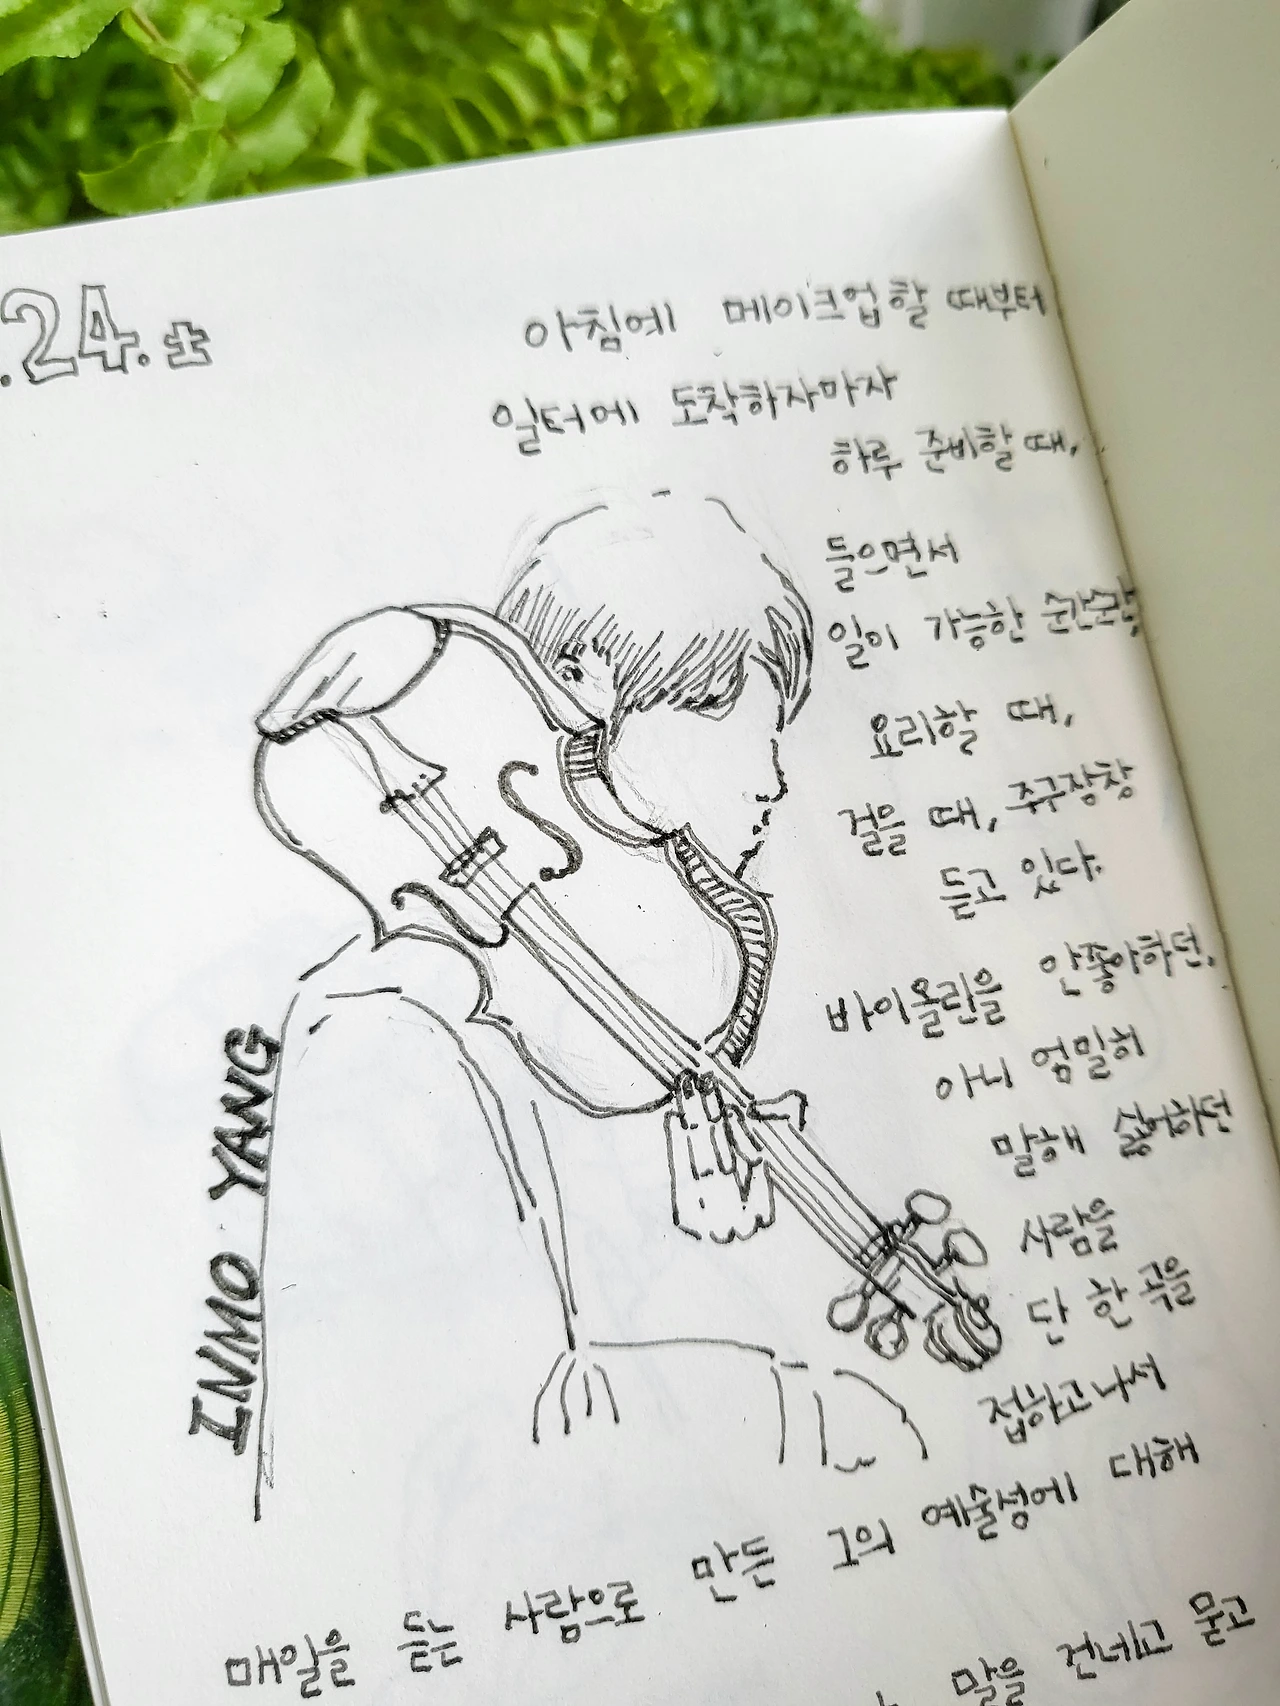 .24.土
아침에 메이크업할 때부터
일터에 도착하자마자
하루 준비할 때,
들으면서
일이 가능한 순간순간
요리할 때,
걸을 때, 주구장창
듣고 있다.
바이올린을 안좋아하던,
아니 엄밀히
말해 싫어하던
사람을
단 한 곡을
접하고나서
매일을 듣는 사람으로 만든 그의 예술성에 대해
말을 건네고 묻고
INMO YANG